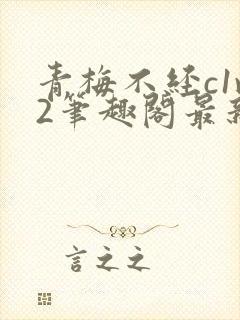 青梅不经c1v
2笔趣阁最新
言之之